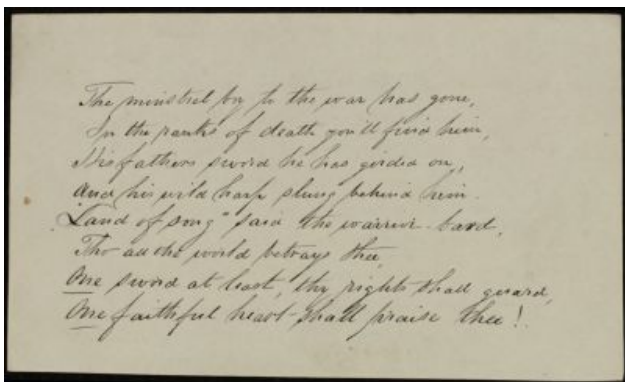 The minstrel boy to the war has gone,
In the ranks of death you'll find him,
His fathers sword he has girded on,
And his wild harp slung behind him.
"Land of song" said the warrior-bard,
Tho all the world betrays thee,
One sword at least, thy rights shall guard,
One faithful heart shall praise thee!